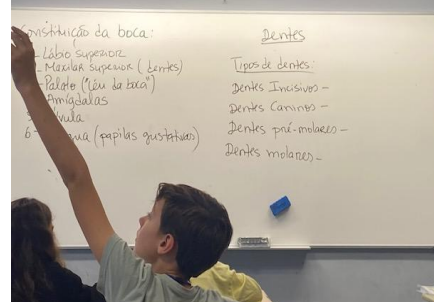 Constituição da boca:
- Lábio superior
- Maxilar superior (dentes)
- Palato ("céu da boca")
Amígdalas
6-
(papilas gustativas)
Dentes
Tipos de dentes:
Dentes Incisivos -
Dentes Caninos -
Dentes pré-molares -
Dentes molares -